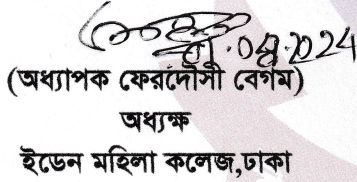 (অধ্যাপক ফেরদৌসী বেগম)
অধ্যক্ষ
ইডেন মহিলা কলেজ,ঢাকা